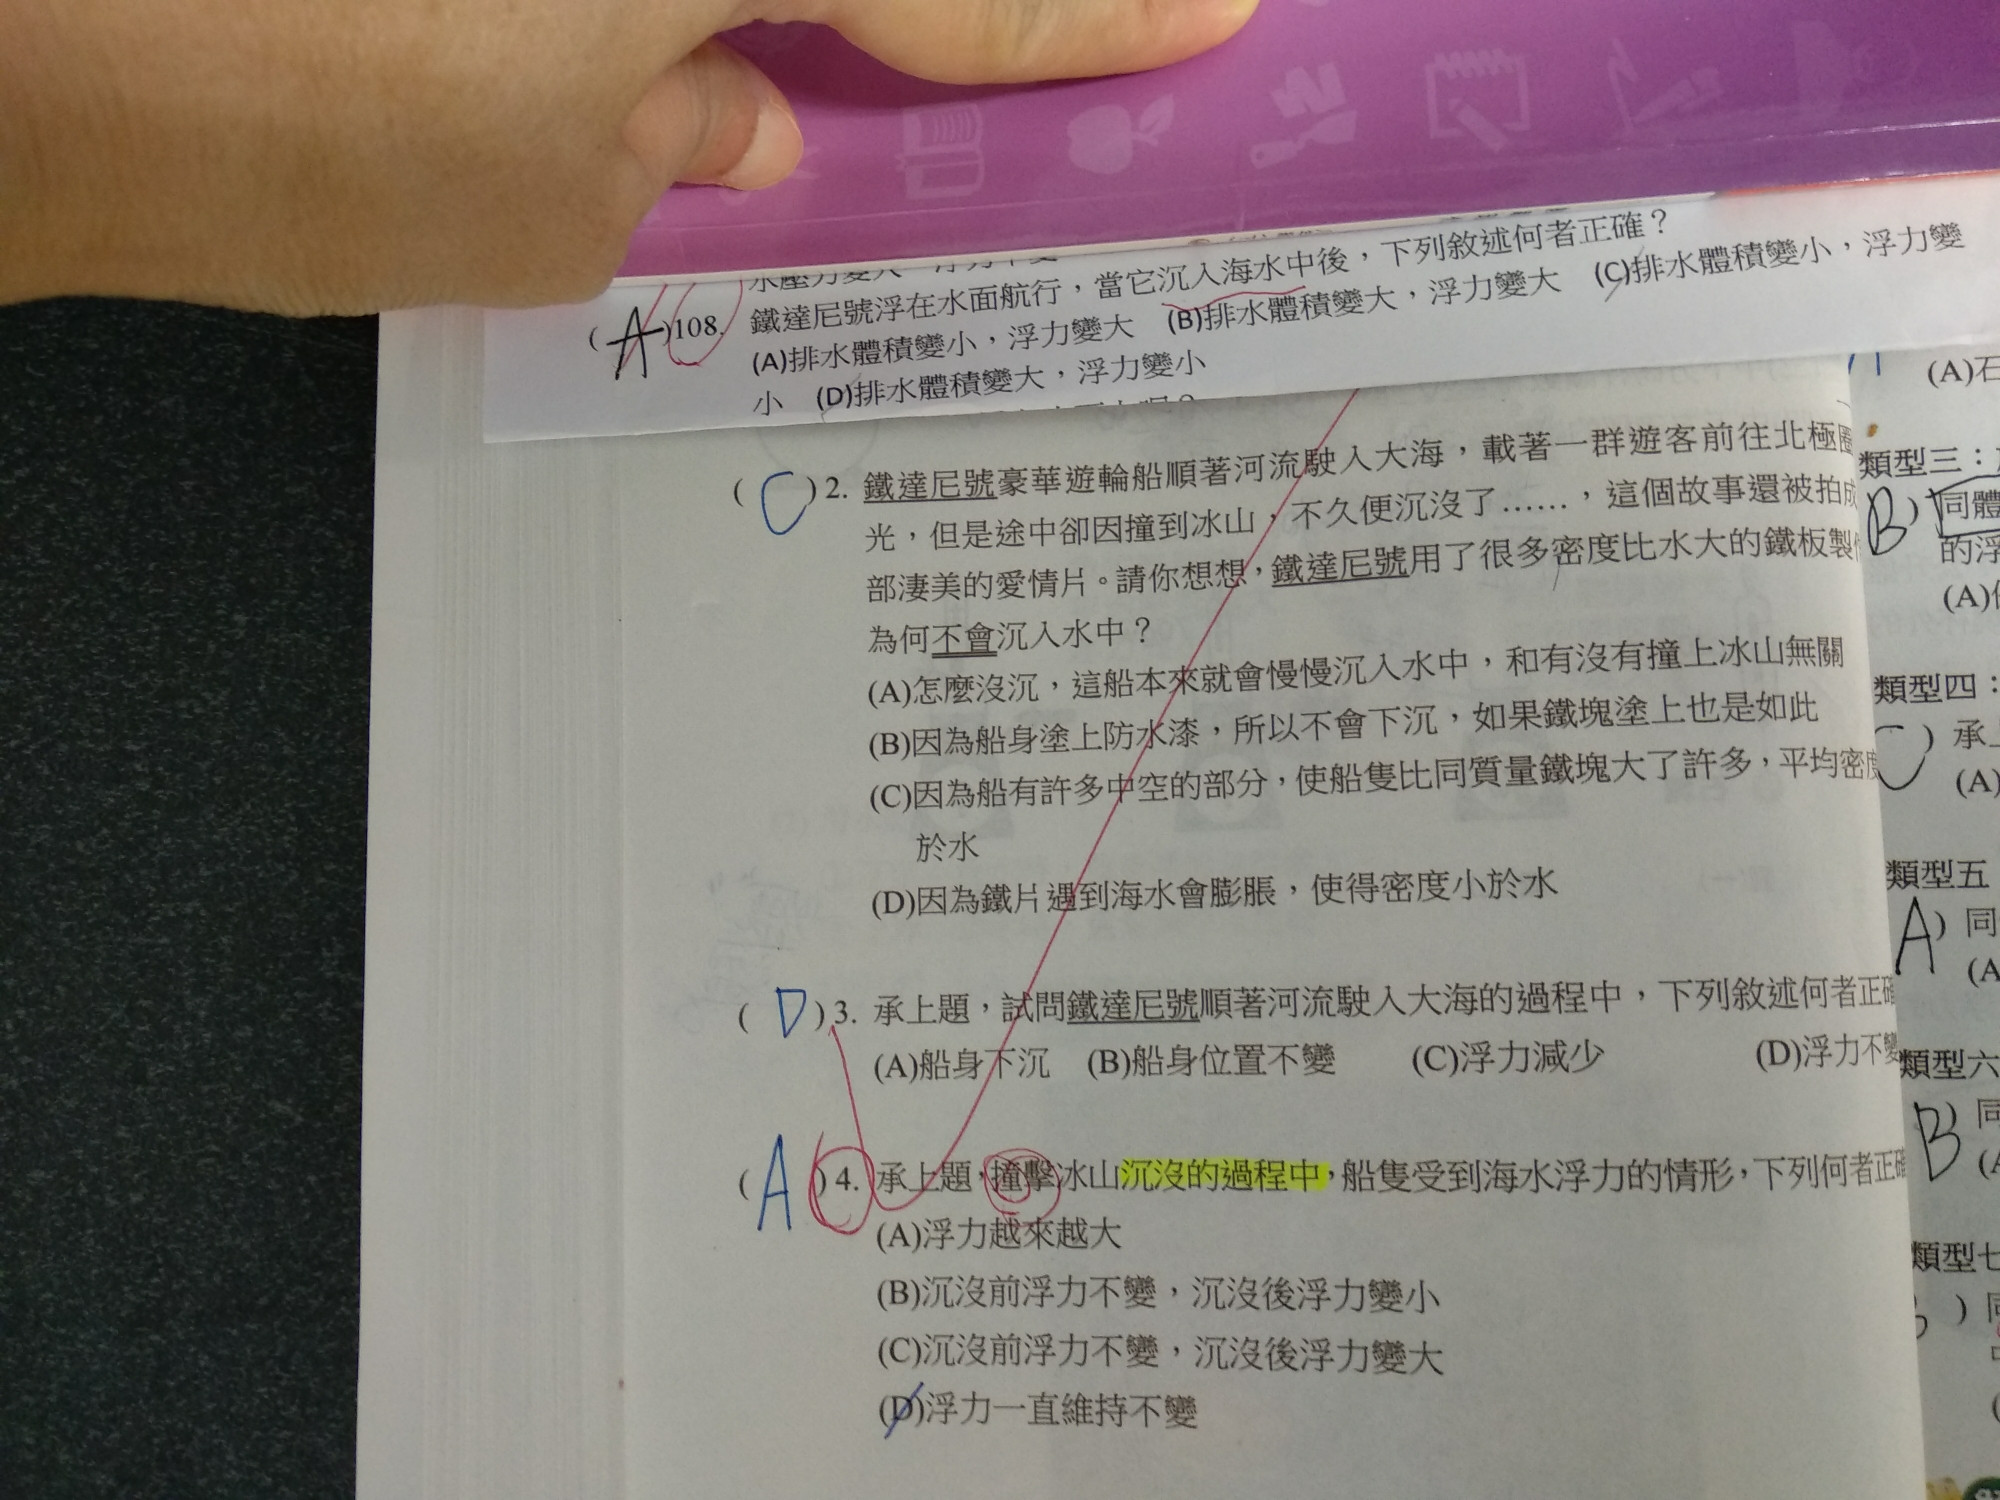 (A)108. 鐵達尼號浮在水面航行，當它沉入海水中後，下列敘述何者正確？
(A)排水體積變小，浮力變大 (B)排水體積變大，浮力變大 (C)排水體積變小，浮力變
小 (D)排水體積變大，浮力變小
(C)2. 鐵達尼號豪華遊輪船順著河流駛入大海，載著一群遊客前往北極圈
光，但是途中卻因撞到冰山，不久便沉沒了……，這個故事還被拍成
部淒美的愛情片。請你想想，鐵達尼號用了很多密度比水大的鐵板製
為何不會沉入水中？
(A)怎麼沒沉，這船本來就會慢慢沉入水中，和有沒有撞上冰山無關
(B)因為船身塗上防水漆，所以不會下沉，如果鐵塊塗上也是如此
(C)因為船有許多中空的部分，使船隻比同質量鐵塊大了許多，平均密度
於水
(D)因為鐵片遇到海水會膨脹，使得密度小於水
(D)3. 承上題，試問鐵達尼號順著河流駛入大海的過程中，下列敘述何者正確
(A)船身下沉 (B)船身位置不變 (C)浮力減少 (D)浮力不變
(A)4. 承上題，撞擊冰山沉沒的過程中，船隻受到海水浮力的情形，下列何者正確
(A)浮力越來越大
(B)沉沒前浮力不變，沉沒後浮力變小
(C)沉沒前浮力不變，沉沒後浮力變大
(D)浮力一直維持不變
(A)石
類型三：
B) 同體
的浮
(A)
類型四：
) 承上
(A)
類型五
A) 同
(A
類型六
B) 同
(A
類型七
) 同